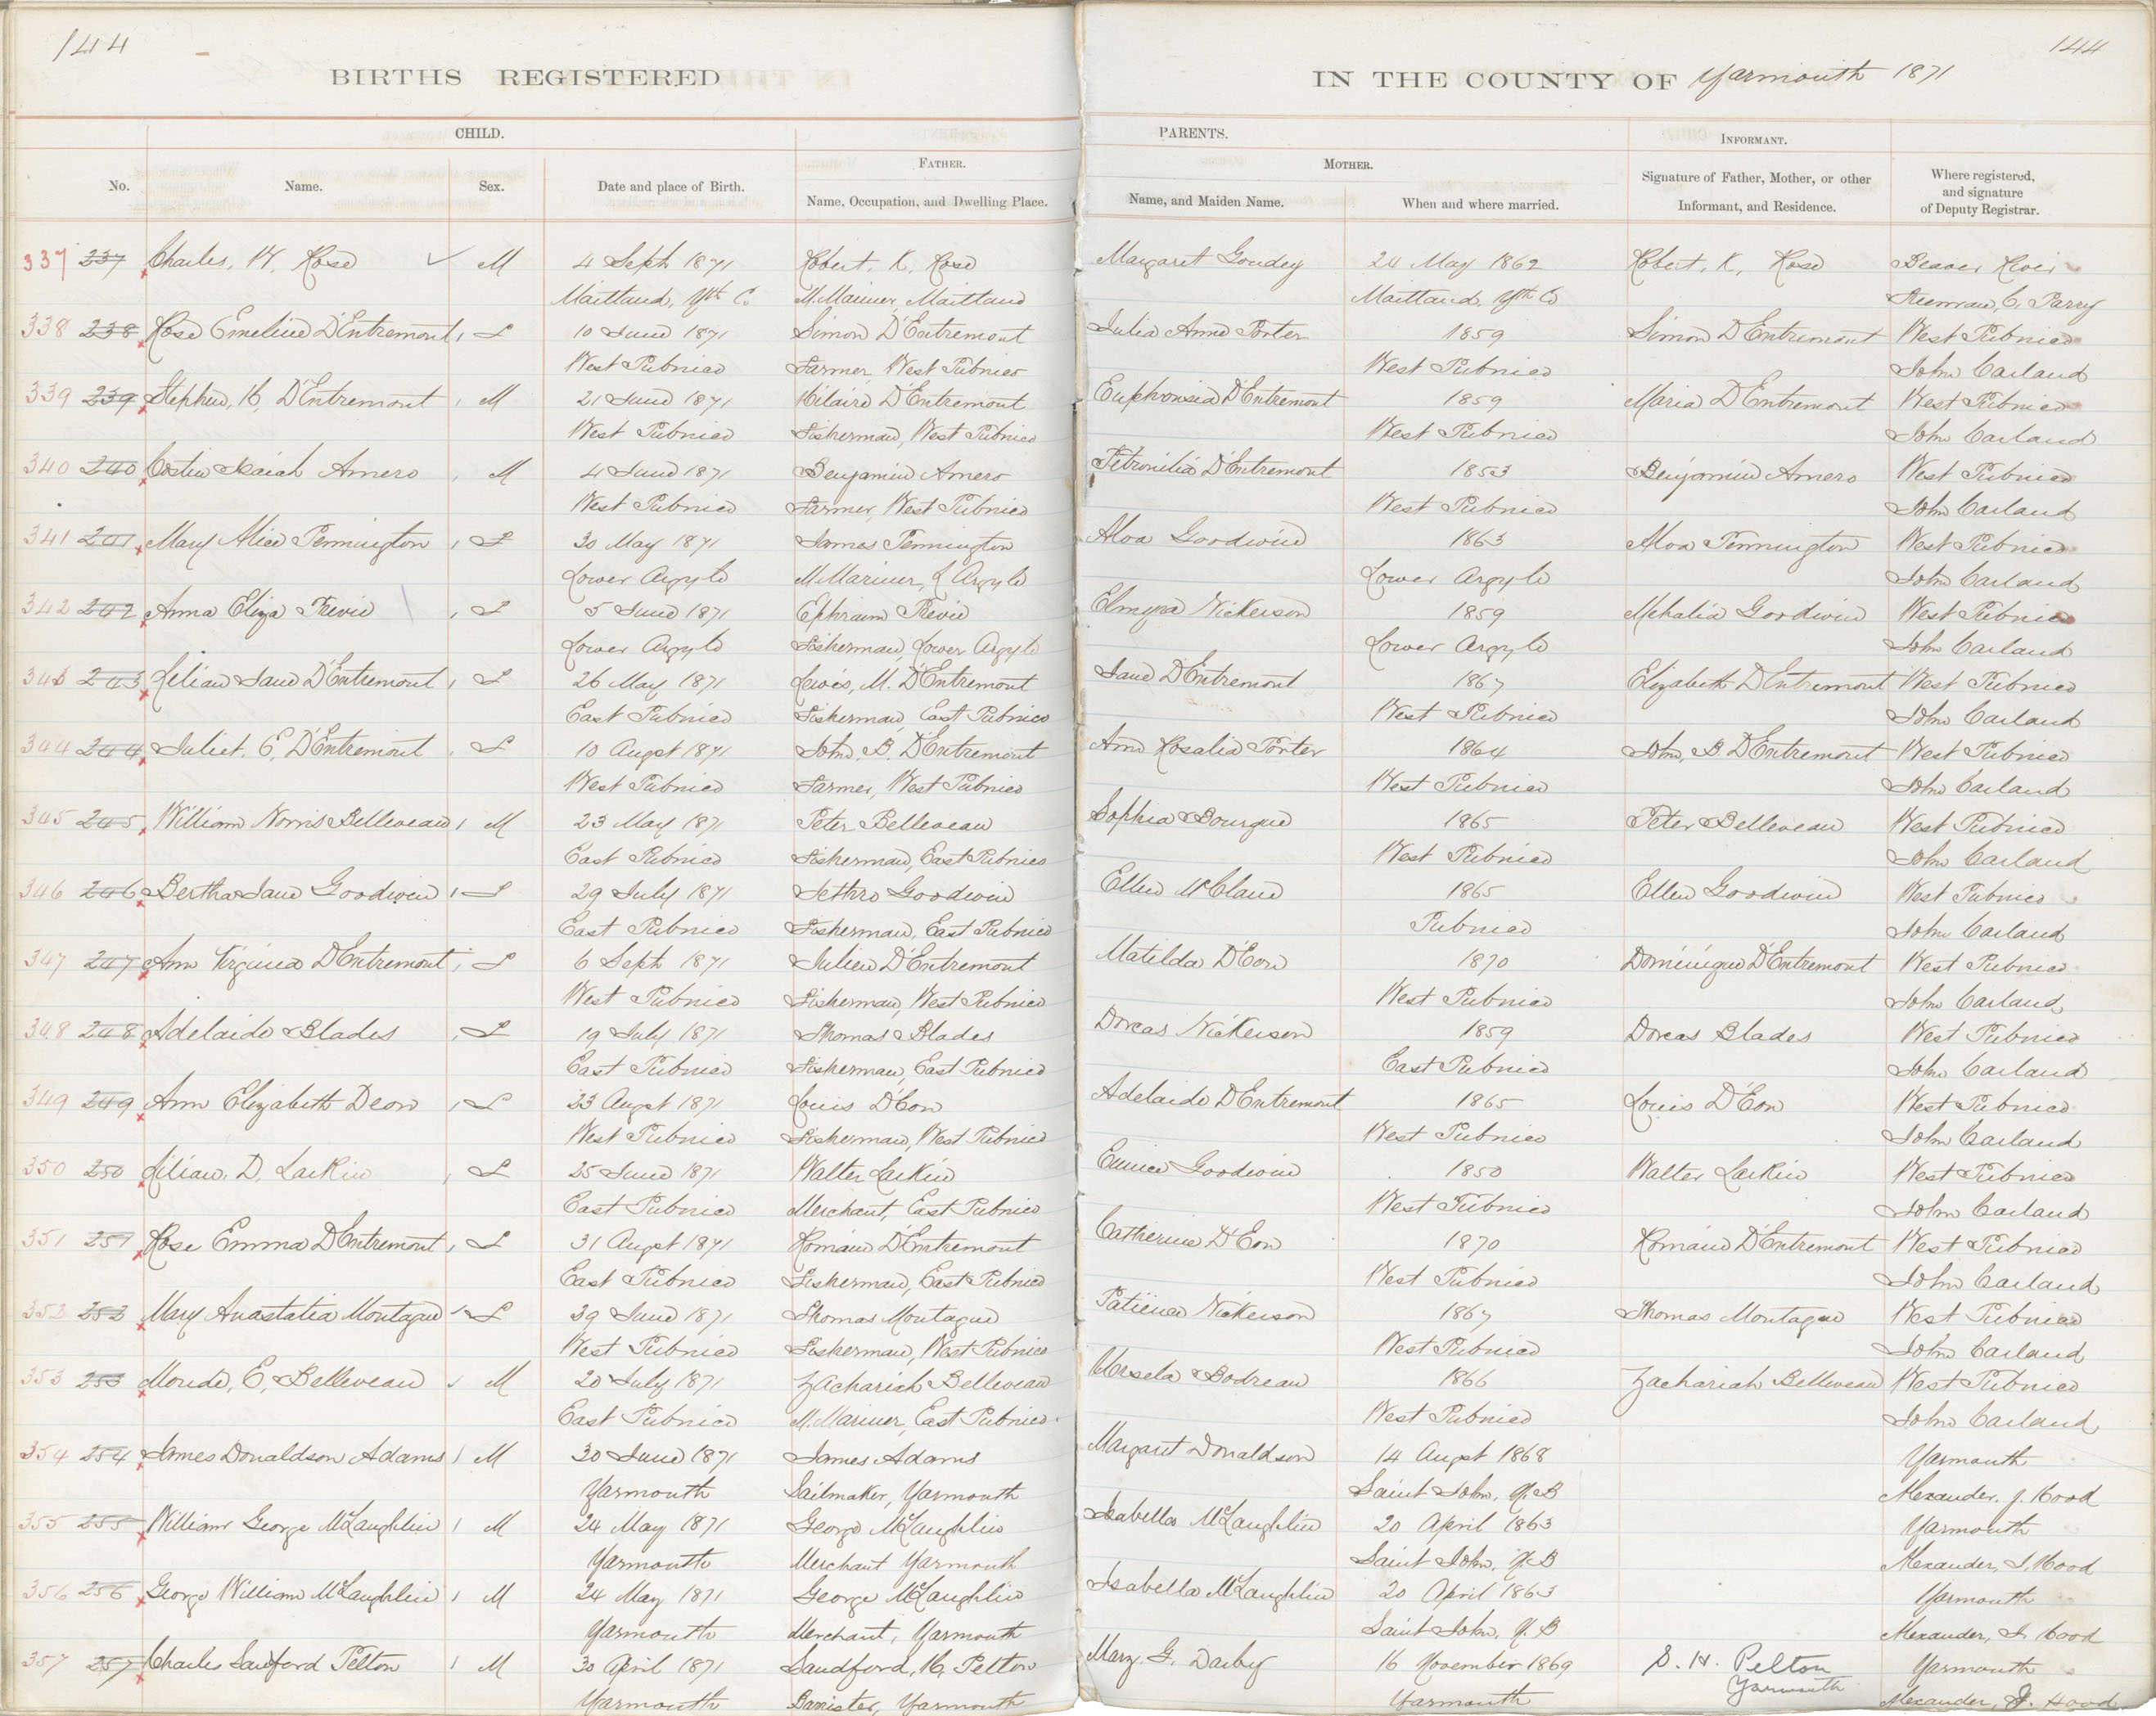 144
144
BIRTHS REGISTERED
IN THE COUNTY OF Yarmouth 1871
CHILD.
PARENTS.
INFORMANT.
FATHER.
MOTHER.
No. Name. Sex. Date and place of Birth. Name, Occupation, and Dwelling Place. Name, and Maiden Name. When and where married. Signature of Father, Mother, or other Informant, and Residence. Where registered, and signature of Deputy Registrar.
337 237 Charles, W, Rose M 4 Sept 1871 Robert, K, Rose Margaret Goudey 24 May 1862 Robert, K, Rose Beaver River
Maitland, Yth Co M. Mariner, Maitland Maitland, Yth Co C, Parry
338 238 Rose Emeline D'Entremont F 10 June 1871 Simon D'Entremont Julia Anne Porter 1859 Simon D'Entremont West Pubnico
West Pubnico Farmer, West Pubnico West Pubnico John Carland
339 239 Stephen, H, D'Entremont M 21 June 1871 Hilaire D'Entremont Euphronsia D'Entremont 1859 Maria D'Entremont West Pubnico
West Pubnico Fisherman, West Pubnico West Pubnico John Carland
340 240 Isaiah Amero M 4 June 1871 Benjamin Amero Petronilia D'Entremont 1853 Benjamin Amero West Pubnico
West Pubnico Farmer, West Pubnico West Pubnico John Carland
341 241 Mary Alice Pennington F 30 May 1871 James Pennington Aloa Goodwin 1863 Aloa Pennington West Pubnico
Lower Argyle M. Mariner, L Argyle Lower Argyle John Carland
342 242 Anna Eliza Frevie F 5 June 1871 Ephraim Frevie Elmyra Nickerson 1859 Mehalia Goodwin West Pubnico
Lower Argyle Fisherman, Lower Argyle Lower Argyle John Carland
343 243 Lilian Jane D'Entremont F 26 May 1871 Lewis, M. D'Entremont Jane D'Entremont 1867 Elizabeth D'Entremont West Pubnico
East Pubnico Fisherman, East Pubnico West Pubnico John Carland
344 244 Juliet. E, D'Entremont F 10 Augst 1871 John, B, D'Entremont Ann Rosalia Porter 1864 John, B. D'Entremont West Pubnico
West Pubnico Farmer, West Pubnico West Pubnico John Carland
345 245 William Norris Belleveau M 23 May 1871 Peter Belleveau Sophia Bourque 1865 Peter Belleveau West Pubnico
East Pubnico Fisherman, East Pubnico West Pubnico John Carland
346 246 Bertha Jane Goodwin F 29 July 1871 Jethro Goodwin Ellen 1865 Ellen Goodwin West Pubnico
East Pubnico Fisherman, East Pubnico Pubnico John Carland
347 247 Ann Virginia D'Entremont F 6 Sept 1871 Julien D'Entremont Matilda D'Eon 1870 Dominique D'Entremont West Pubnico
West Pubnico Fisherman, West Pubnico West Pubnico John Carland
348 248 Adelaide Blades F 19 July 1871 Thomas Blades Dorcas Nickerson 1859 Dorcas Blades West Pubnico
East Pubnico Fisherman, East Pubnico East Pubnico John Carland
349 249 Ann Elizabeth Deon F 23 Augst 1871 Louis D'Eon Adelaide D'Entremont 1865 Louis D'Eon West Pubnico
West Pubnico Fisherman, West Pubnico West Pubnico John Carland
350 250 Lilian, D, Larkin F 25 June 1871 Walter Larkin Eunice Goodwin 1850 Walter Larkin West Pubnico
East Pubnico Merchant, East Pubnico West Pubnico John Carland
351 251 Rose Emma D'Entremont F 31 Augst 1871 Romain D'Entremont Catherine D'Eon 1870 Romain D'Entremont West Pubnico
East Pubnico Fisherman, East Pubnico West Pubnico John Carland
352 252 Mary Anastatia Montague F June 1871 Thomas Montague Patience Nickerson 1867 Thomas Montague West Pubnico
West Pubnico Fisherman, West Pubnico West Pubnico John Carland
353 253 E, Belleveau M 20 July 1871 Zachariah Belleveau Ursela Bodreau 1866 Zachariah Belleveau West Pubnico
East Pubnico M. Mariner, East Pubnico West Pubnico John Carland
354 254 James Donaldson Adams M 30 June 1871 James Adams Margaret Donaldson 14 Augst 1868 Yarmouth
Yarmouth Sailmaker, Yarmouth Saint John, N.B Alexander, J. Hood
355 255 William George McLaughlin M 24 May 1871 George McLaughlin Isabella McLaughlin 20 April 1863 Yarmouth
Yarmouth Merchant Yarmouth Saint John, N.B Alexander, J. Hood
356 256 George William McLaughlin M 24 May 1871 George McLaughlin Isabella McLaughlin 20 April 1863 Yarmouth
Yarmouth Merchant, Yarmouth Saint John, N.B Alexander, J. Hood
357 257 Charles Sandford Pelton M 30 April 1871 Sandford, H, Pelton Mary. G. Darby 16 November 1869 S. H. Pelton Yarmouth
Yarmouth Barrister, Yarmouth Yarmouth Yarmouth Alexander, J. Hood